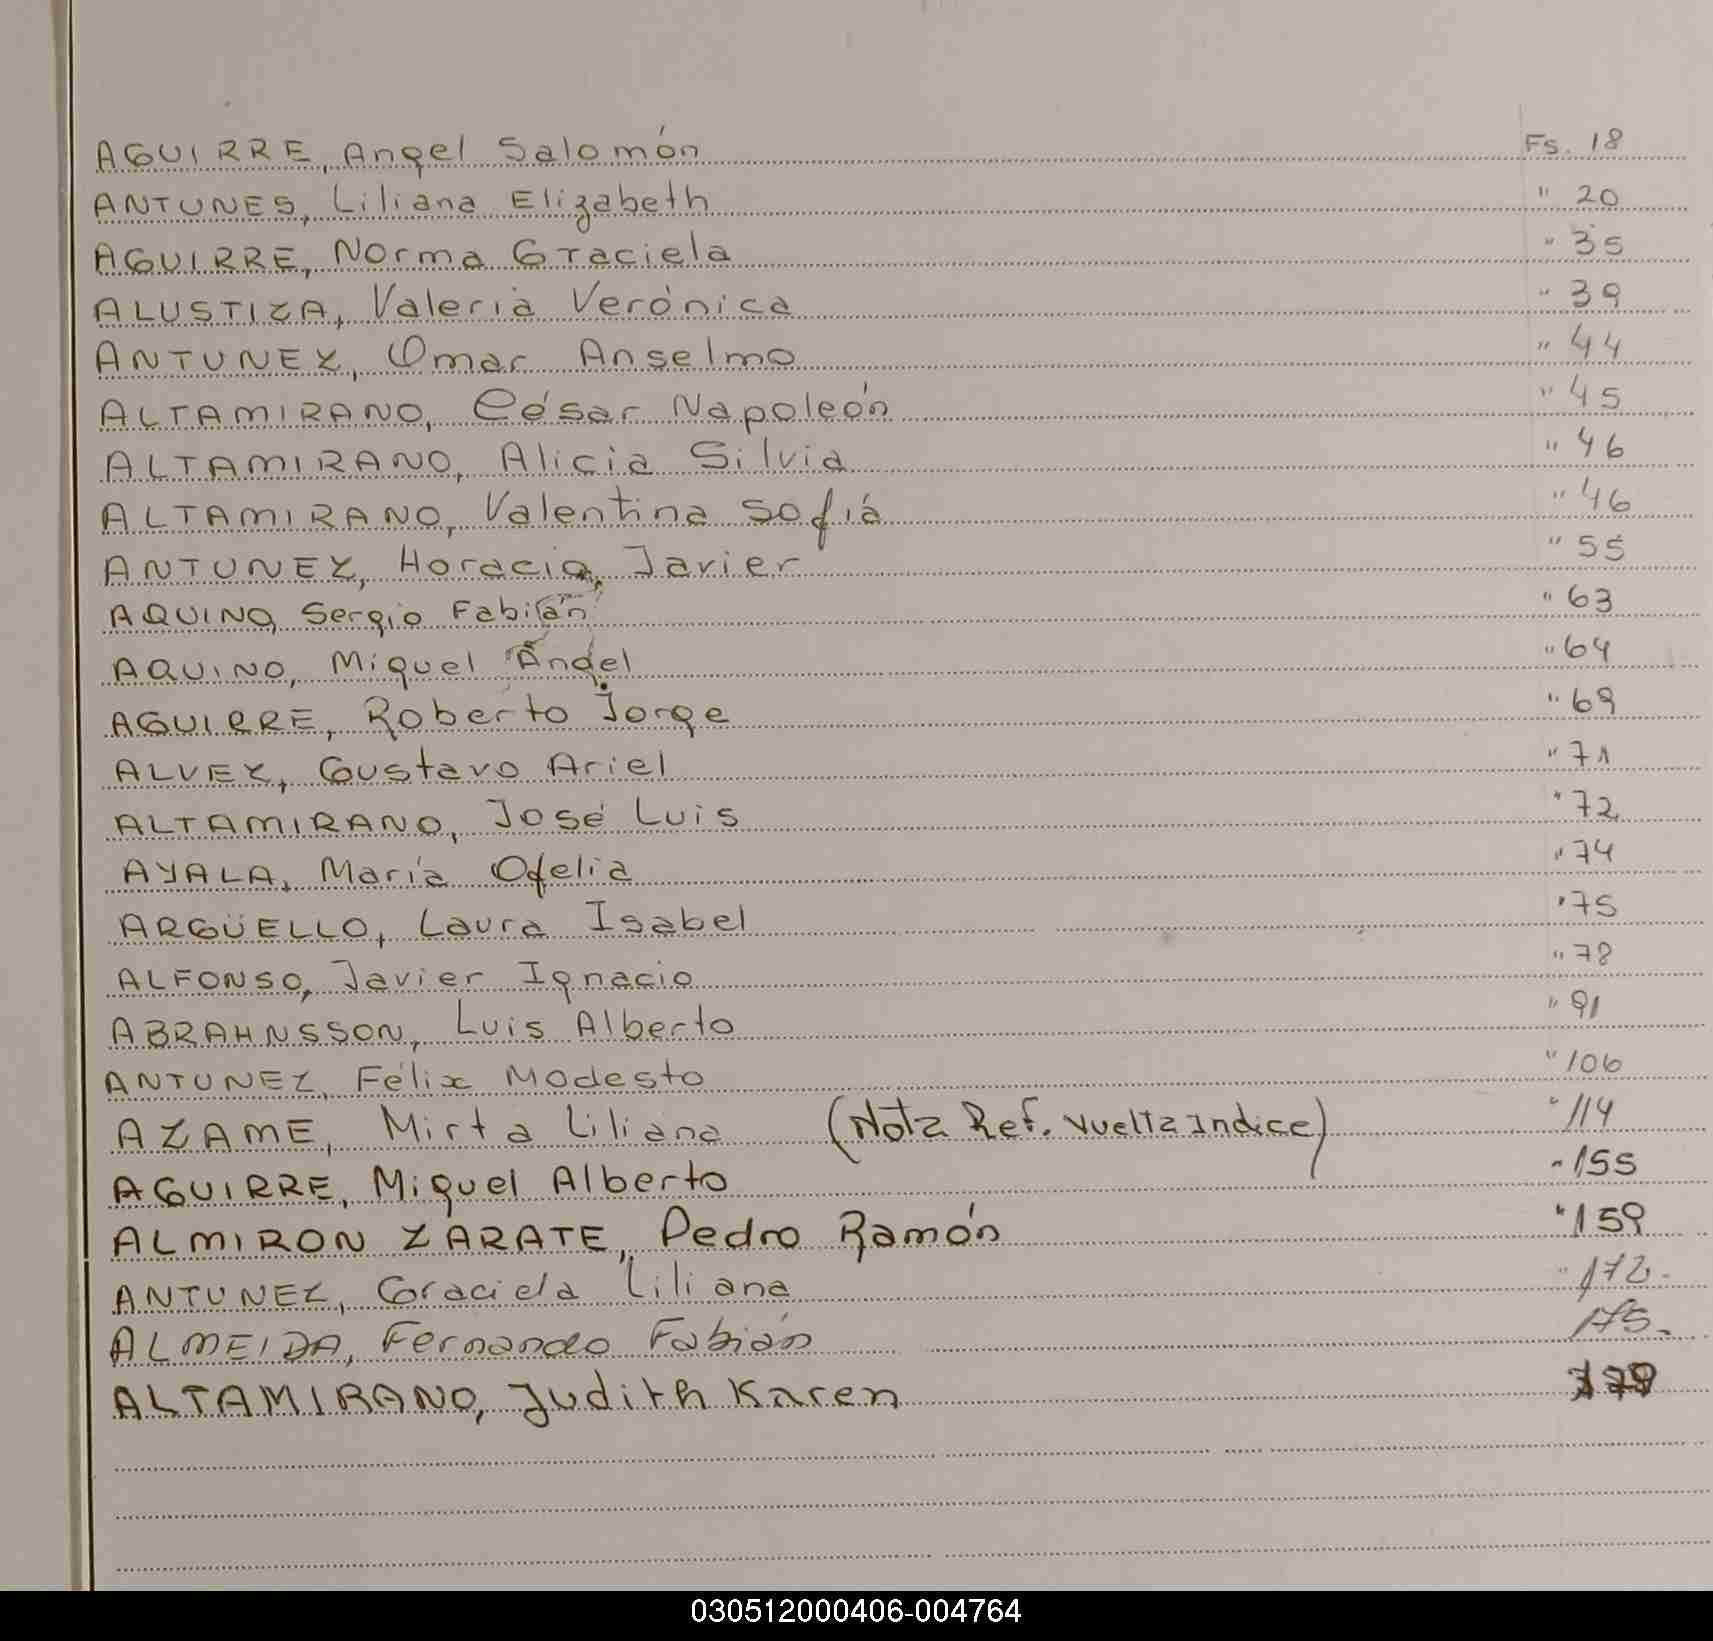 AGUIRRE, Angel Salomón Fs. 18
ANTUNES, Liliana Elizabeth " 20
AGUIRRE, Norma Graciela " 35
ALUSTIZA, Valeria Verónica " 39
ANTUNEZ, Omar Anselmo " 44
ALTAMIRANO, César Napoleón " 45
ALTAMIRANO, Alicia Silvia " 46
ALTAMIRANO, Valentina Sofía " 46
ANTUNEZ, Horacio, Javier " 55
AQUINO, Sergio Fabián " 63
AQUINO, Miguel Ángel " 64
AGUIRRE, Roberto Jorge " 69
ALVEZ, Gustavo Ariel " 71
ALTAMIRANO, José Luis " 72
AYALA, María Ofelia " 74
ARGÜELLO, Laura Isabel " 75
ALFONSO, Javier Ignacio " 78
ABRAHNSSON, Luis Alberto " 91
ANTUNEZ, Félix Modesto " 106
AZAME, Mirta Liliana (Nota Ref. Vuelta Indice) " 114
AGUIRRE, Miguel Alberto " 155
ALMIRON ZARATE, Pedro Ramón " 159
ANTUNEZ, Graciela Liliana " 172.
ALMEIDA, Fernando Fabián 175.
ALTAMIRANO, Judith Karen
030512000406-004764